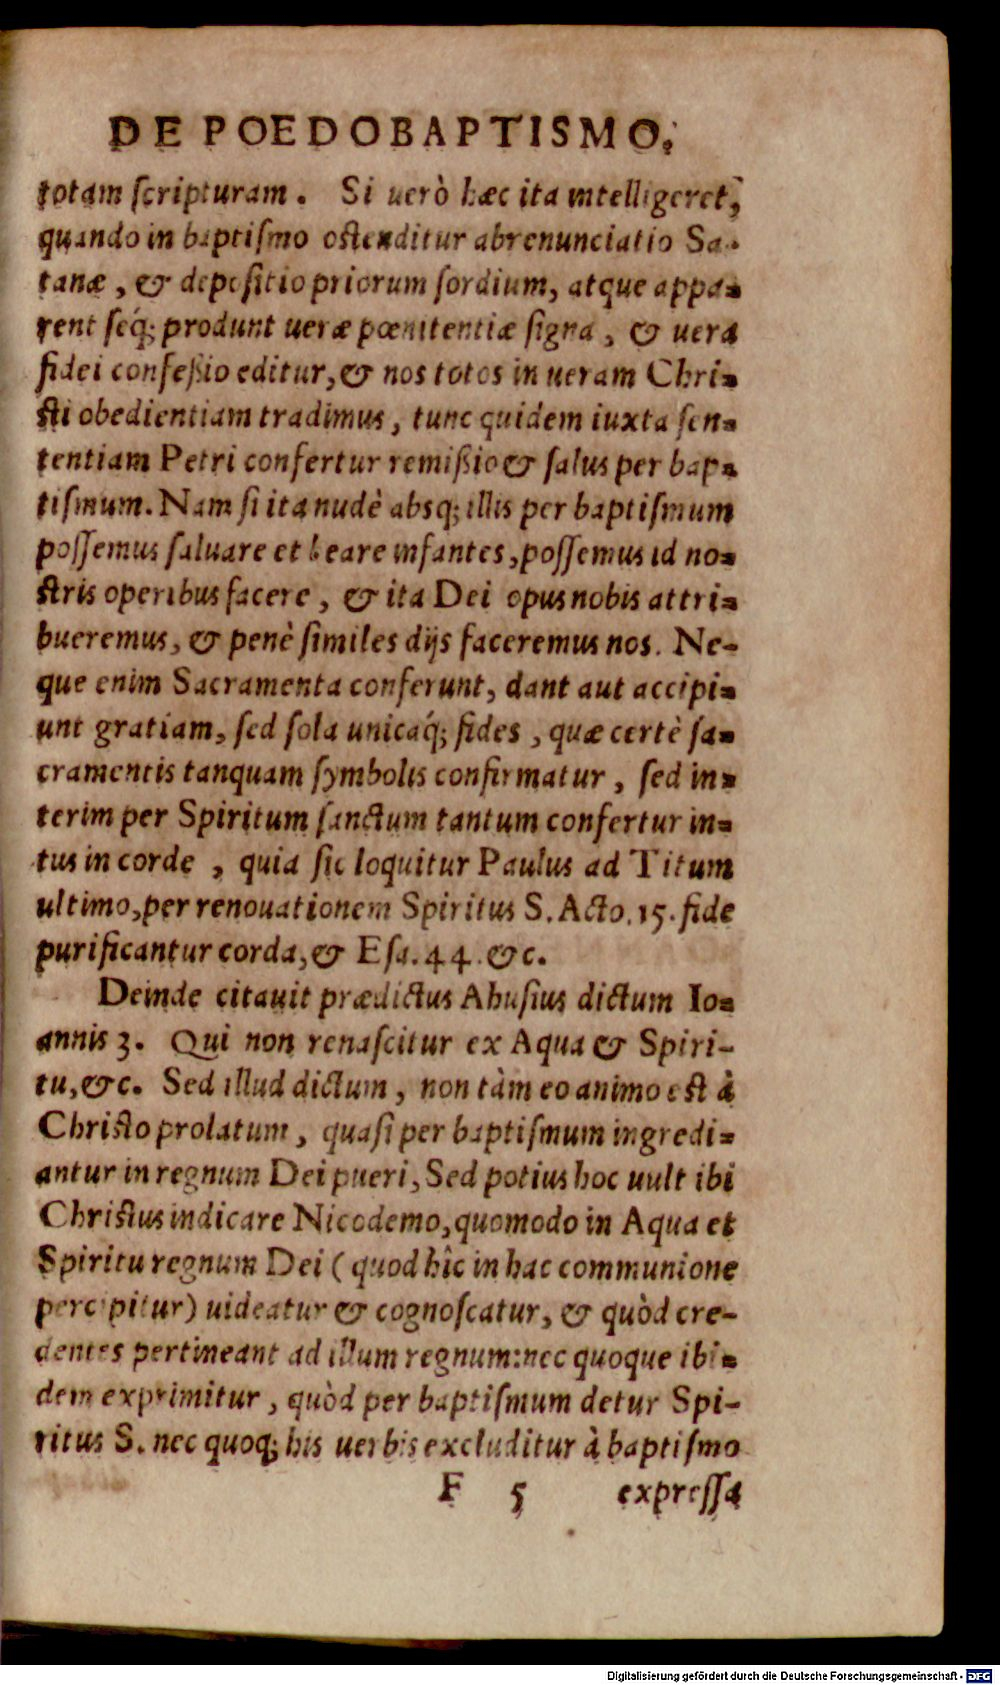 DE POEDOBAPTISMO.
totam ſcripturam. Si uerò hæc ita intelligeret,
quando in baptiſmo oſtenditur abrenunciatio Sa-
tanæ, & depoſitio priorum ſordium, atque appa-
rent ſeq́; produnt ueræ pœnitentiæ ſigna, & uera
fidei confeßio editur, & nos totos in ueram Chri-
ſti obedientiam tradimus, tunc quidem iuxta ſen-
tentiam Petri confertur remißio & ſalus per bap-
tiſmum. Nam ſi ita nudè absq; illis per baptiſmum
poſſemus ſaluare et beare infantes, poſſemus id no-
ſtris operibus facere, & ita Dei opus nobis attri-
bueremus, & penè ſimiles dijs faceremus nos. Ne-
que enim Sacramenta conferunt, dant aut accipi-
unt gratiam, ſed ſola unicaq́; fides, quæ certè ſa-
cramentis tanquam ſymbolis confirmatur, ſed in-
terim per Spiritum ſanctum tantum confertur in-
tus in corde, quia ſic loquitur Paulus ad Titum
ultimo, per renouationem Spiritus S. Acto. 15. fide
purificantur corda, & Eſa. 44. &c.
Deinde citauit prædictus Ahuſius dictum Io-
annis 3. Qui non renaſcitur ex Aqua & Spiri-
tu, &c. Sed illud dictum, non tàm eo animo eſt à
Chriſto prolatum, quaſi per baptiſmum ingredi-
antur in regnum Dei pueri, Sed potius hoc uult ibi
Chriſtus indicare Nicodemo, quomodo in Aqua et
Spiritu regnum Dei (quod hîc in hac communione
percipitur) uideatur & cognoſcatur, & quòd cre-
dentes pertineant ad illum regnum: nec quoque ibi-
dem exprimitur, quòd per baptiſmum detur Spi-
ritus S. nec quoq; his uerbis excluditur à baptiſmo
F 5 expreſſa
Digitalisierung gefördert durch die Deutsche Forschungsgemeinschaft - DFG